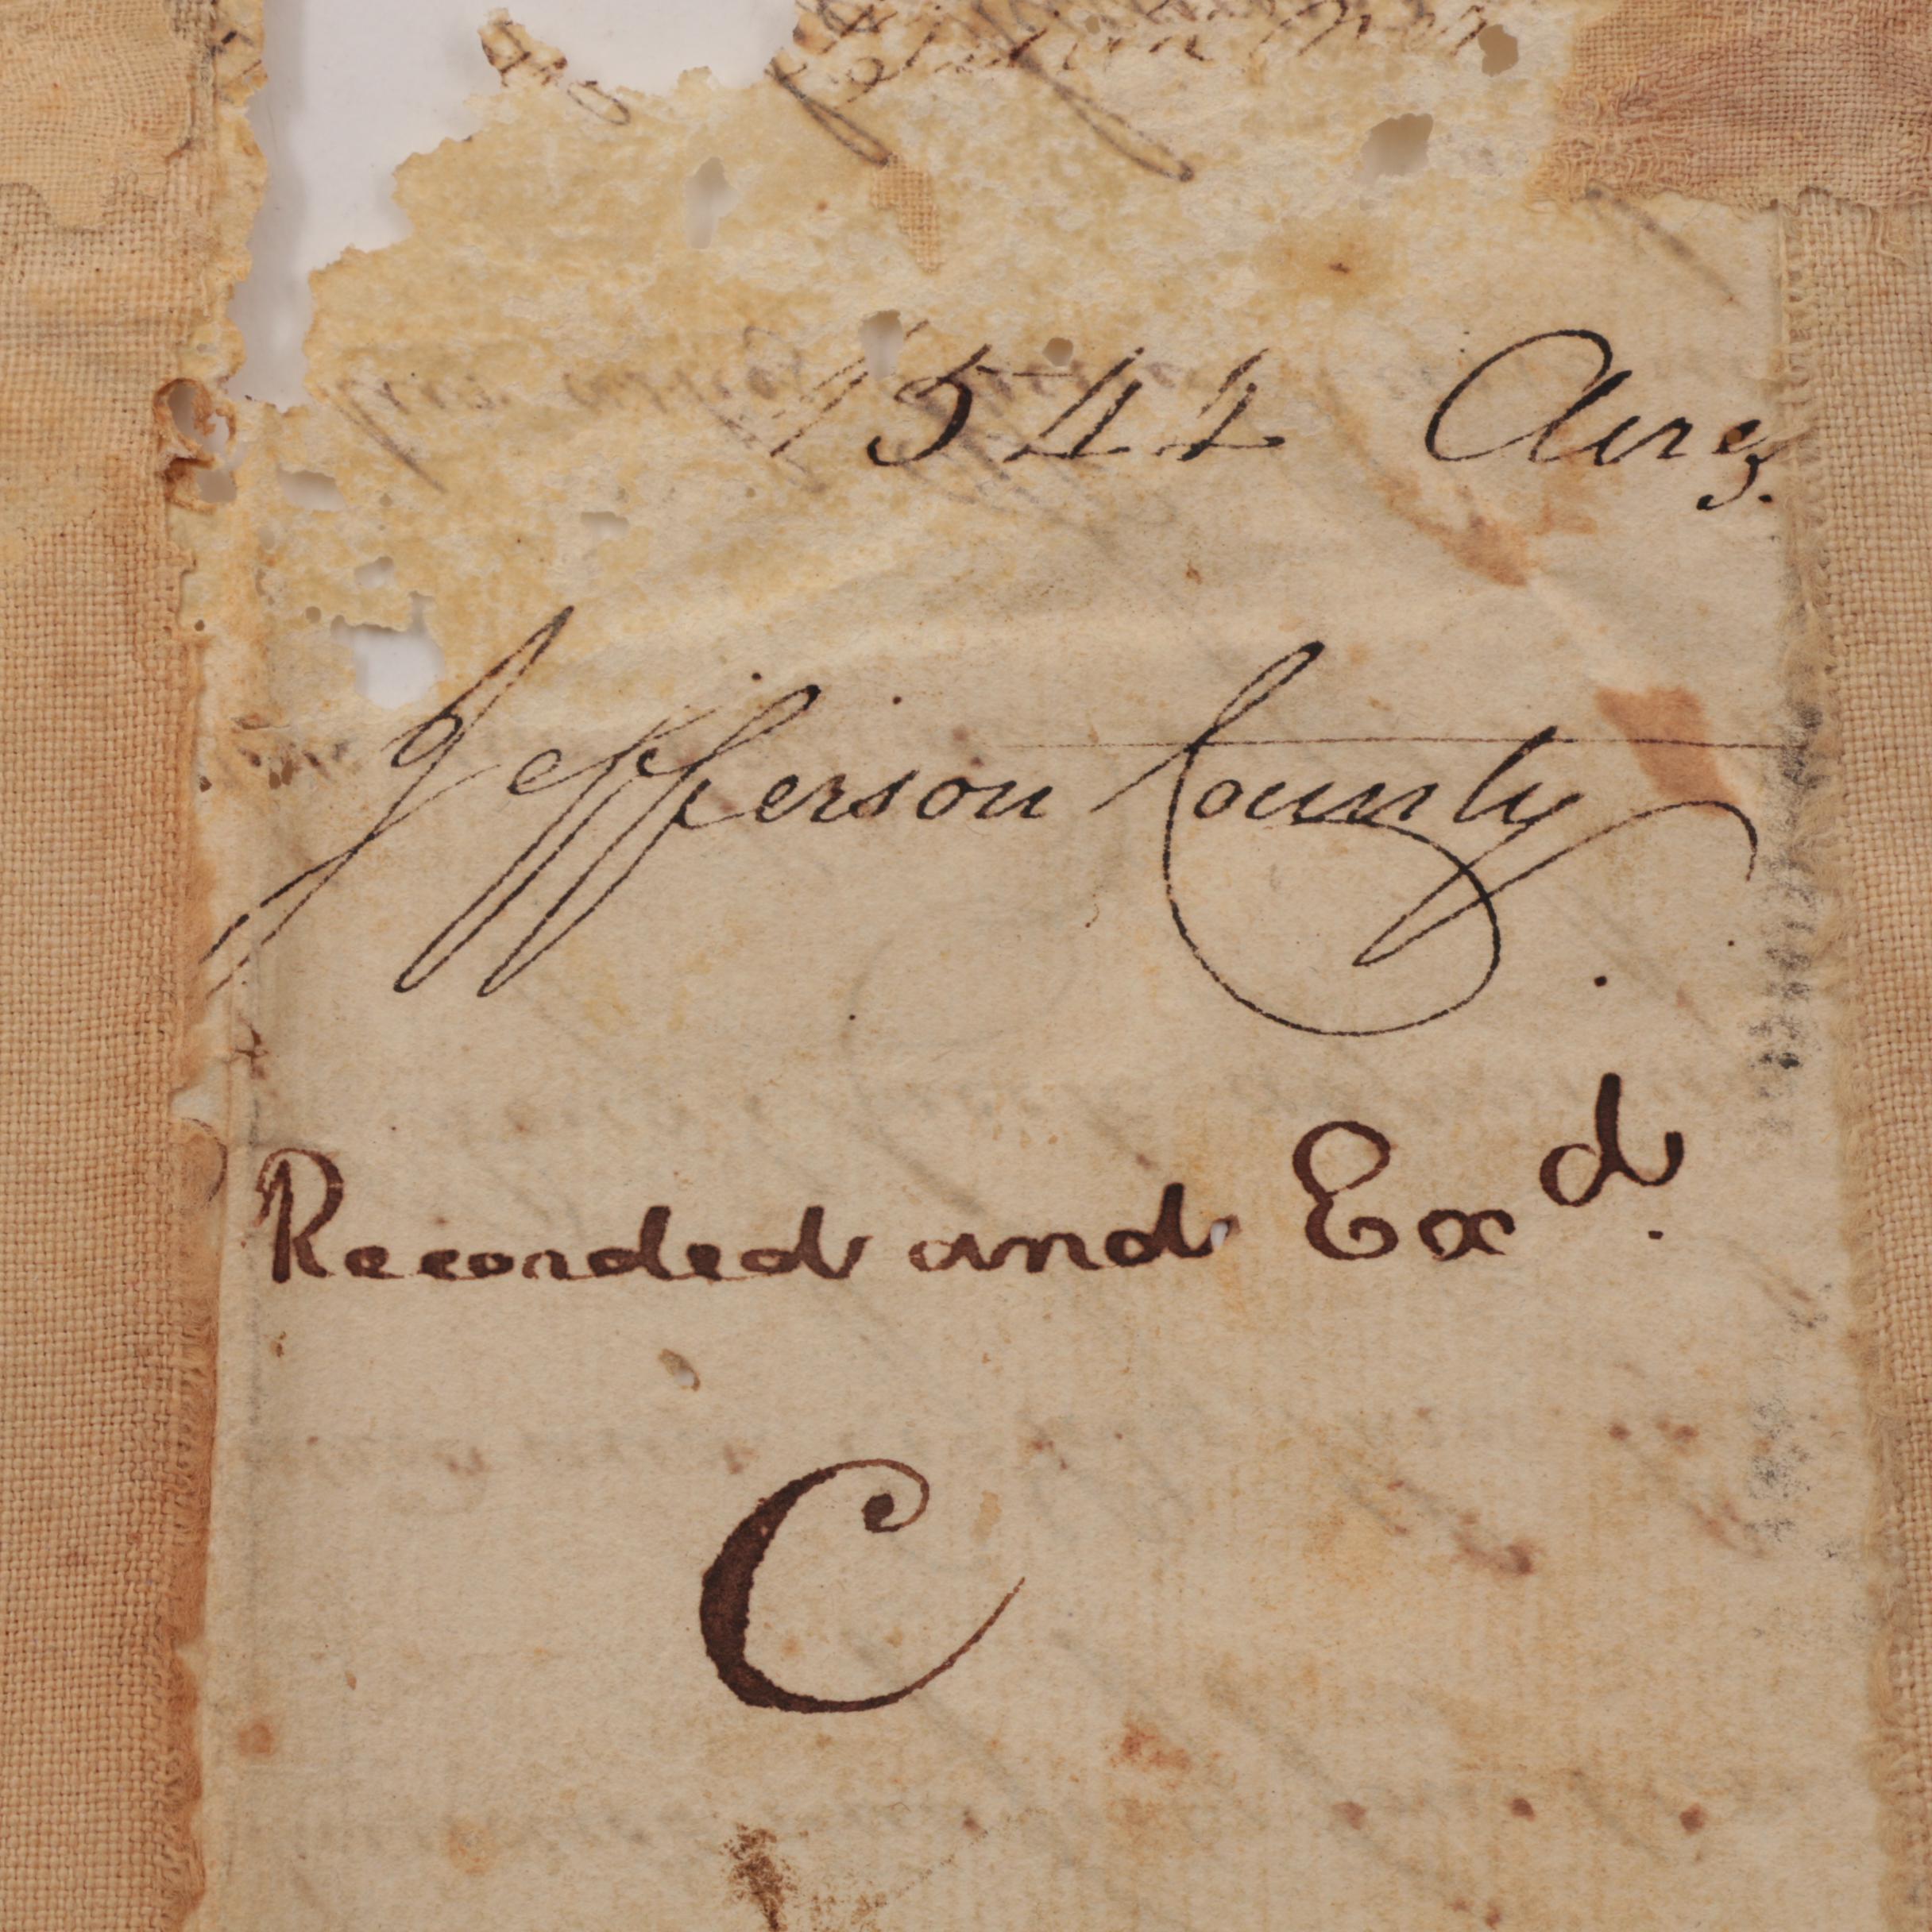 1544 Acres.
Jefferson County
Recorded and Exd.
C